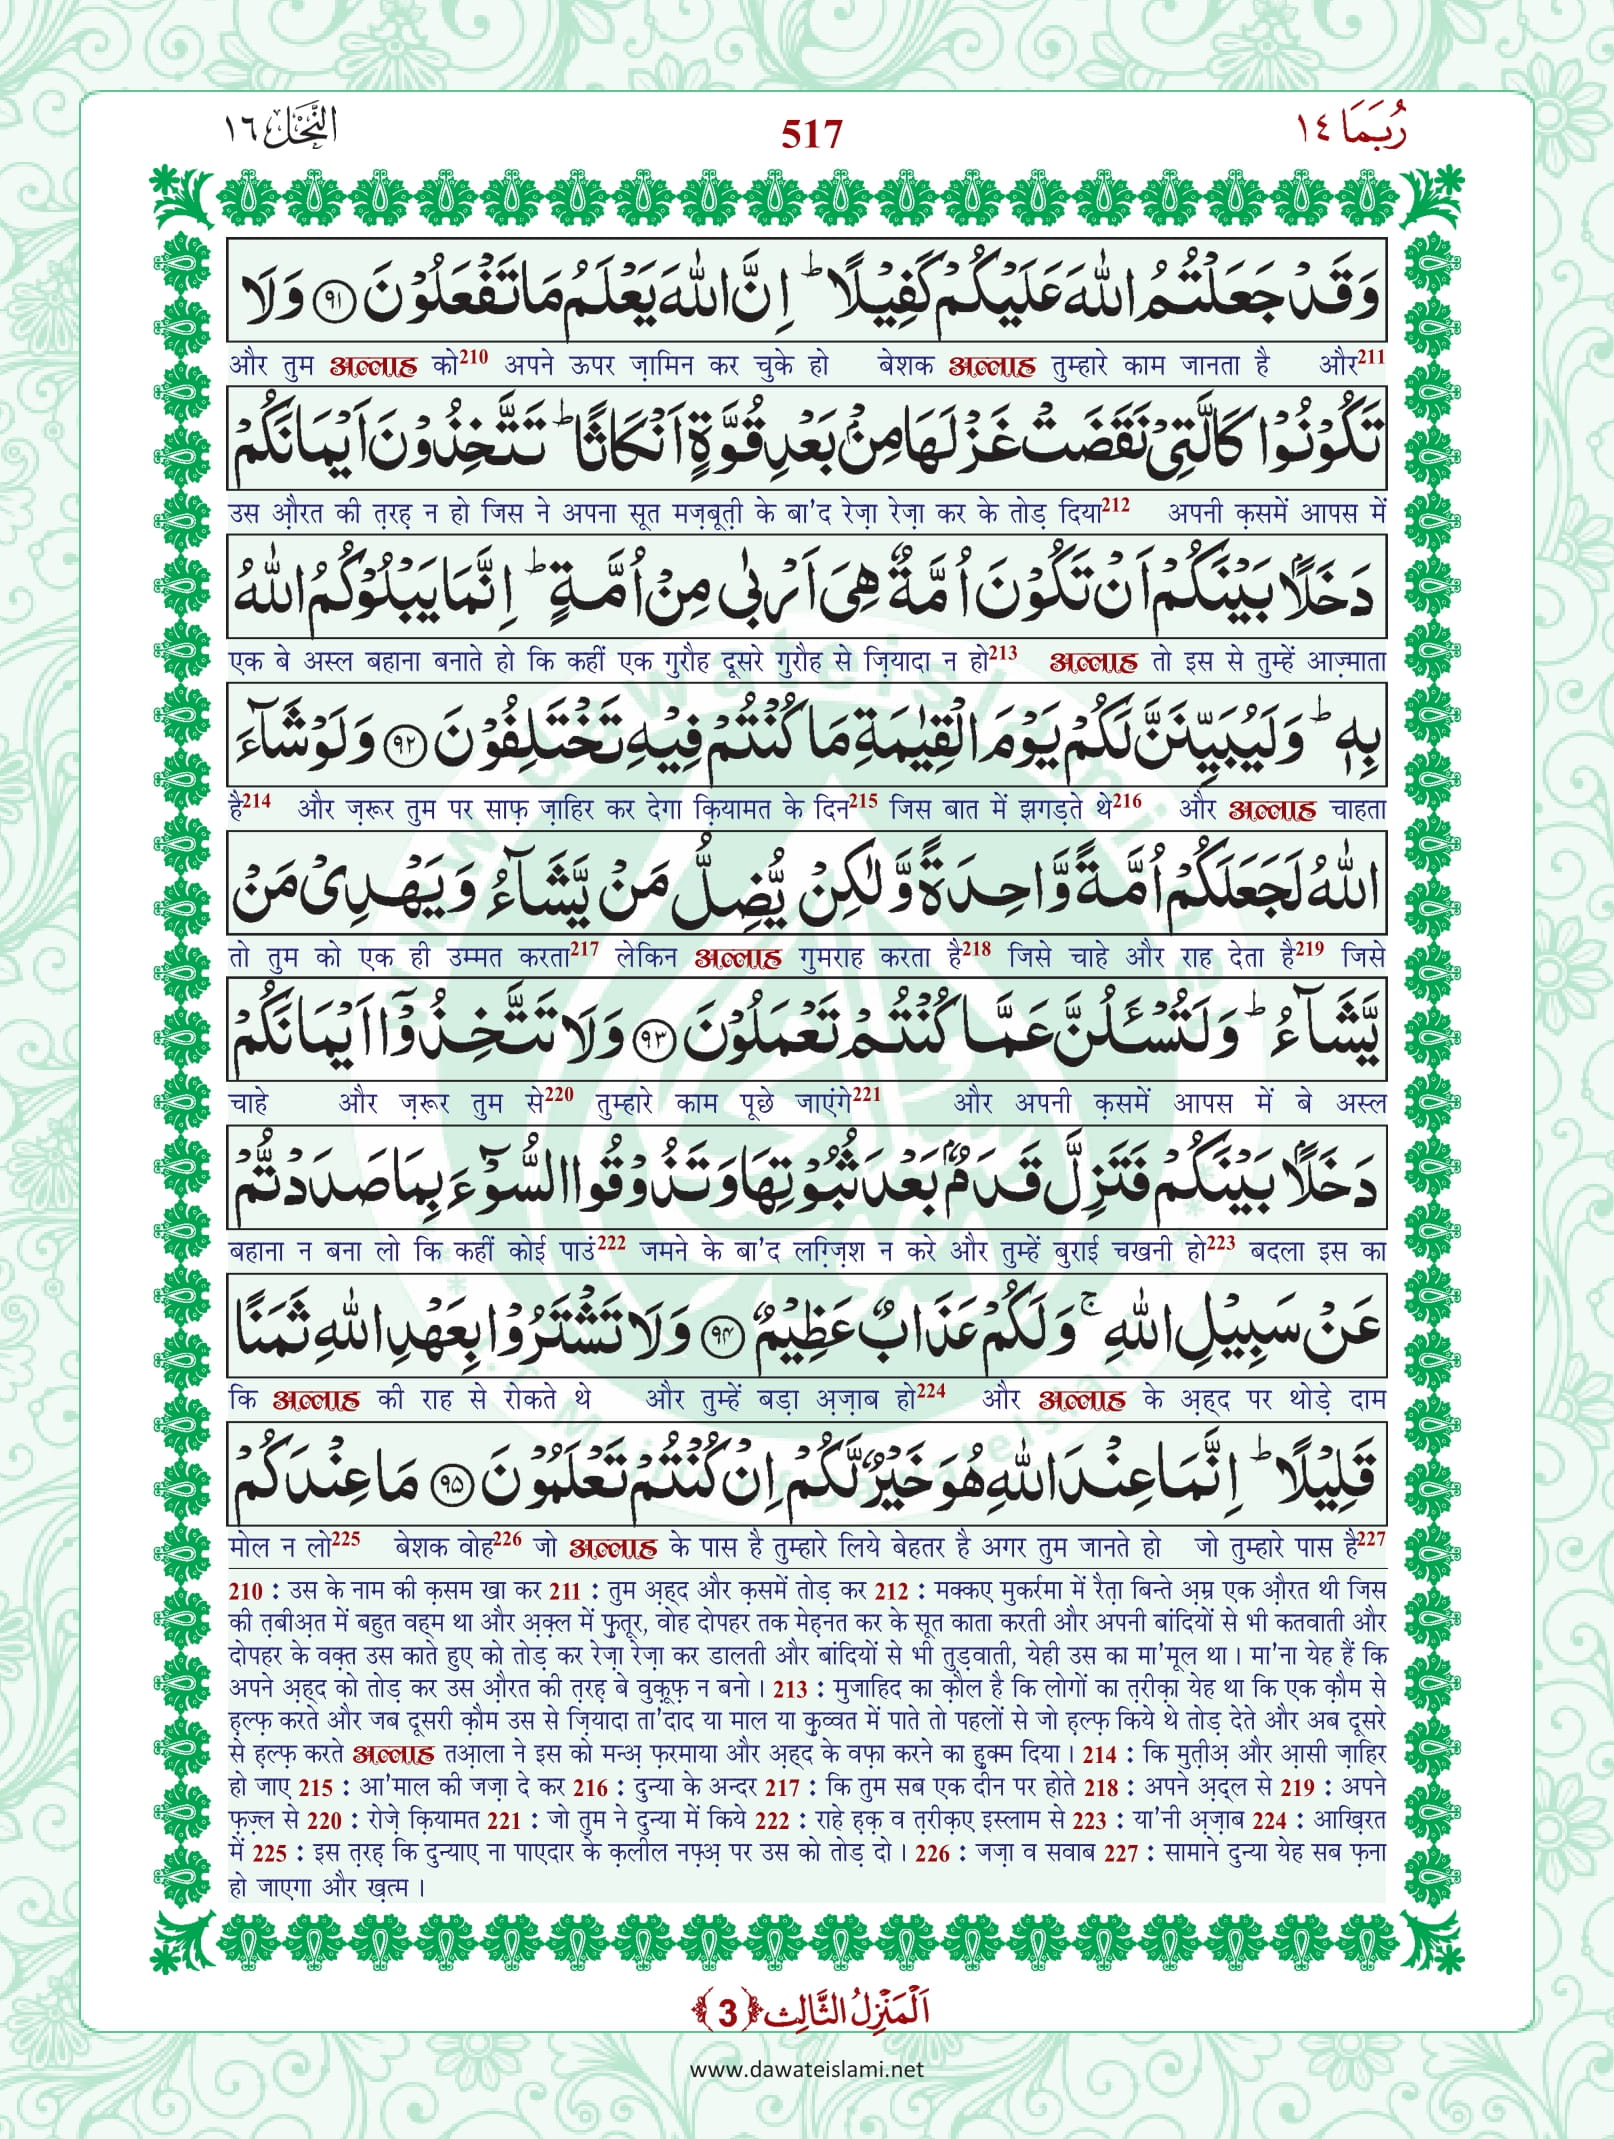 رُبَمَا ١٤
517
النَّحْل ١٦
وَقَدْ جَعَلْتُمُ اللّٰهَ عَلَيْكُمْ كَفِيْلًا ؕ اِنَّ اللّٰهَ يَعْلَمُ مَا تَفْعَلُوْنَ ﴿۹۱﴾ وَلَا
और तुम अल्लाह को210 अपने ऊपर ज़ामिन कर चुके हो बेशक अल्लाह तुम्हारे काम जानता है और211
تَكُوْنُوْا كَالَّتِیْ نَقَضَتْ غَزْلَهَا مِنْۢ بَعْدِ قُوَّةٍ اَنْكَاثًا ؕ تَتَّخِذُوْنَ اَيْمَانَكُمْ
उस औ़रत की त़रह़ न हो जिस ने अपना सूत मज़बूत़ी के बा'द रेज़ा रेज़ा कर के तोड़ दिया212 अपनी क़समें आपस में
دَخَلًۢا بَيْنَكُمْ اَنْ تَكُوْنَ اُمَّةٌ هِیَ اَرْبٰی مِنْ اُمَّةٍ ؕ اِنَّمَا يَبْلُوْكُمُ اللّٰهُ
एक बे अस्ल बहाना बनाते हो कि कहीं एक गुरौह दूसरे गुरौह से ज़ियादा न हो213 अल्लाह तो इस से तुम्हें आज़्माता
بِهٖ ؕ وَلَيُبَيِّنَنَّ لَكُمْ يَوْمَ الْقِيٰمَةِ مَا كُنْتُمْ فِيْهِ تَخْتَلِفُوْنَ ﴿۹۲﴾ وَلَوْ شَآءَ
है214 और ज़रूर तुम पर साफ़ ज़ाहिर कर देगा क़ियामत के दिन215 जिस बात में झगड़ते थे216 और अल्लाह चाहता
اللّٰهُ لَجَعَلَكُمْ اُمَّةً وَّاحِدَةً وَّلٰكِنْ يُّضِلُّ مَنْ يَّشَآءُ وَيَهْدِیْ مَنْ
तो तुम को एक ही उम्मत करता217 लेकिन अल्लाह गुमराह करता है218 जिसे चाहे और राह देता है219 जिसे
يَّشَآءُ ؕ وَلَتُسْـَٔلُنَّ عَمَّا كُنْتُمْ تَعْمَلُوْنَ ﴿۹۳﴾ وَلَا تَتَّخِذُوْۤا اَيْمَانَكُمْ
चाहे और ज़रूर तुम से220 तुम्हारे काम पूछे जाएंगे221 और अपनी क़समें आपस में बे अस्ल
دَخَلًۢا بَيْنَكُمْ فَتَزِلَّ قَدَمٌۢ بَعْدَ ثُبُوْتِهَا وَتَذُوْقُوا السُّوْٓءَ بِمَا صَدَدْتُّمْ
बहाना न बना लो कि कहीं कोई पाउं222 जमने के बा'द लग़्ज़िश न करे और तुम्हें बुराई चखनी हो223 बदला इस का
عَنْ سَبِيْلِ اللّٰهِ ۚ وَلَكُمْ عَذَابٌ عَظِيْمٌ ﴿۹۴﴾ وَلَا تَشْتَرُوْا بِعَهْدِ اللّٰهِ ثَمَنًا
कि अल्लाह की राह से रोकते थे और तुम्हें बड़ा अ़ज़ाब हो224 और अल्लाह के अ़ह्द पर थोड़े दाम
قَلِيْلًا ؕ اِنَّمَا عِنْدَ اللّٰهِ هُوَ خَيْرٌ لَّكُمْ اِنْ كُنْتُمْ تَعْلَمُوْنَ ﴿۹۵﴾ مَا عِنْدَكُمْ
मोल न लो225 बेशक वोह226 जो अल्लाह के पास है तुम्हारे लिये बेहतर है अगर तुम जानते हो जो तुम्हारे पास है227
210 : उस के नाम की क़सम खा कर 211 : तुम अ़ह्द और क़समें तोड़ कर 212 : मक्कए मुकर्रमा में रैत़ा बिन्ते अ़म्र एक औ़रत थी जिस
की त़बीअ़त में बहुत वहम था और अ़क़्ल में फ़ुतूर, वोह दोपहर तक मेह़नत कर के सूत काता करती और अपनी बांदियों से भी कतवाती और
दोपहर के वक़्त उस काते हुए को तोड़ कर रेज़ा रेज़ा कर डालती और बांदियों से भी तुड़वाती, येही उस का मा'मूल था । मा'ना येह हैं कि
अपने अ़ह्द को तोड़ कर उस औ़रत की त़रह़ बे वुक़ूफ़ न बनो । 213 : मुजाहिद का क़ौल है कि लोगों का त़रीक़ा येह था कि एक क़ौम से
ह़ल्फ़ करते और जब दूसरी क़ौम उस से ज़ियादा ता'दाद या माल या क़ुव्वत में पाते तो पहलों से जो ह़ल्फ़ किये थे तोड़ देते और अब दूसरे
से ह़ल्फ़ करते अल्लाह तआ़ला ने इस को मन्अ़ फ़रमाया और अ़ह्द के वफ़ा करने का हुक्म दिया । 214 : कि मुत़ीअ़ और आ़सी ज़ाहिर
हो जाए 215 : आ'माल की जज़ा दे कर 216 : दुन्या के अन्दर 217 : कि तुम सब एक दीन पर होते 218 : अपने अ़द्ल से 219 : अपने
फ़ज़्ल से 220 : रोज़े क़ियामत 221 : जो तुम ने दुन्या में किये 222 : राहे ह़क़ व त़रीक़ए इस्लाम से 223 : या'नी अ़ज़ाब 224 : आख़िरत
में 225 : इस त़रह़ कि दुन्याए ना पाएदार के क़लील नफ़्अ़ पर उस को तोड़ दो । 226 : जज़ा व सवाब 227 : सामाने दुन्या येह सब फ़ना
हो जाएगा और ख़त्म ।
اَلْمَنْزِلُ الثَّالِث ﴿3﴾
www.dawateislami.net